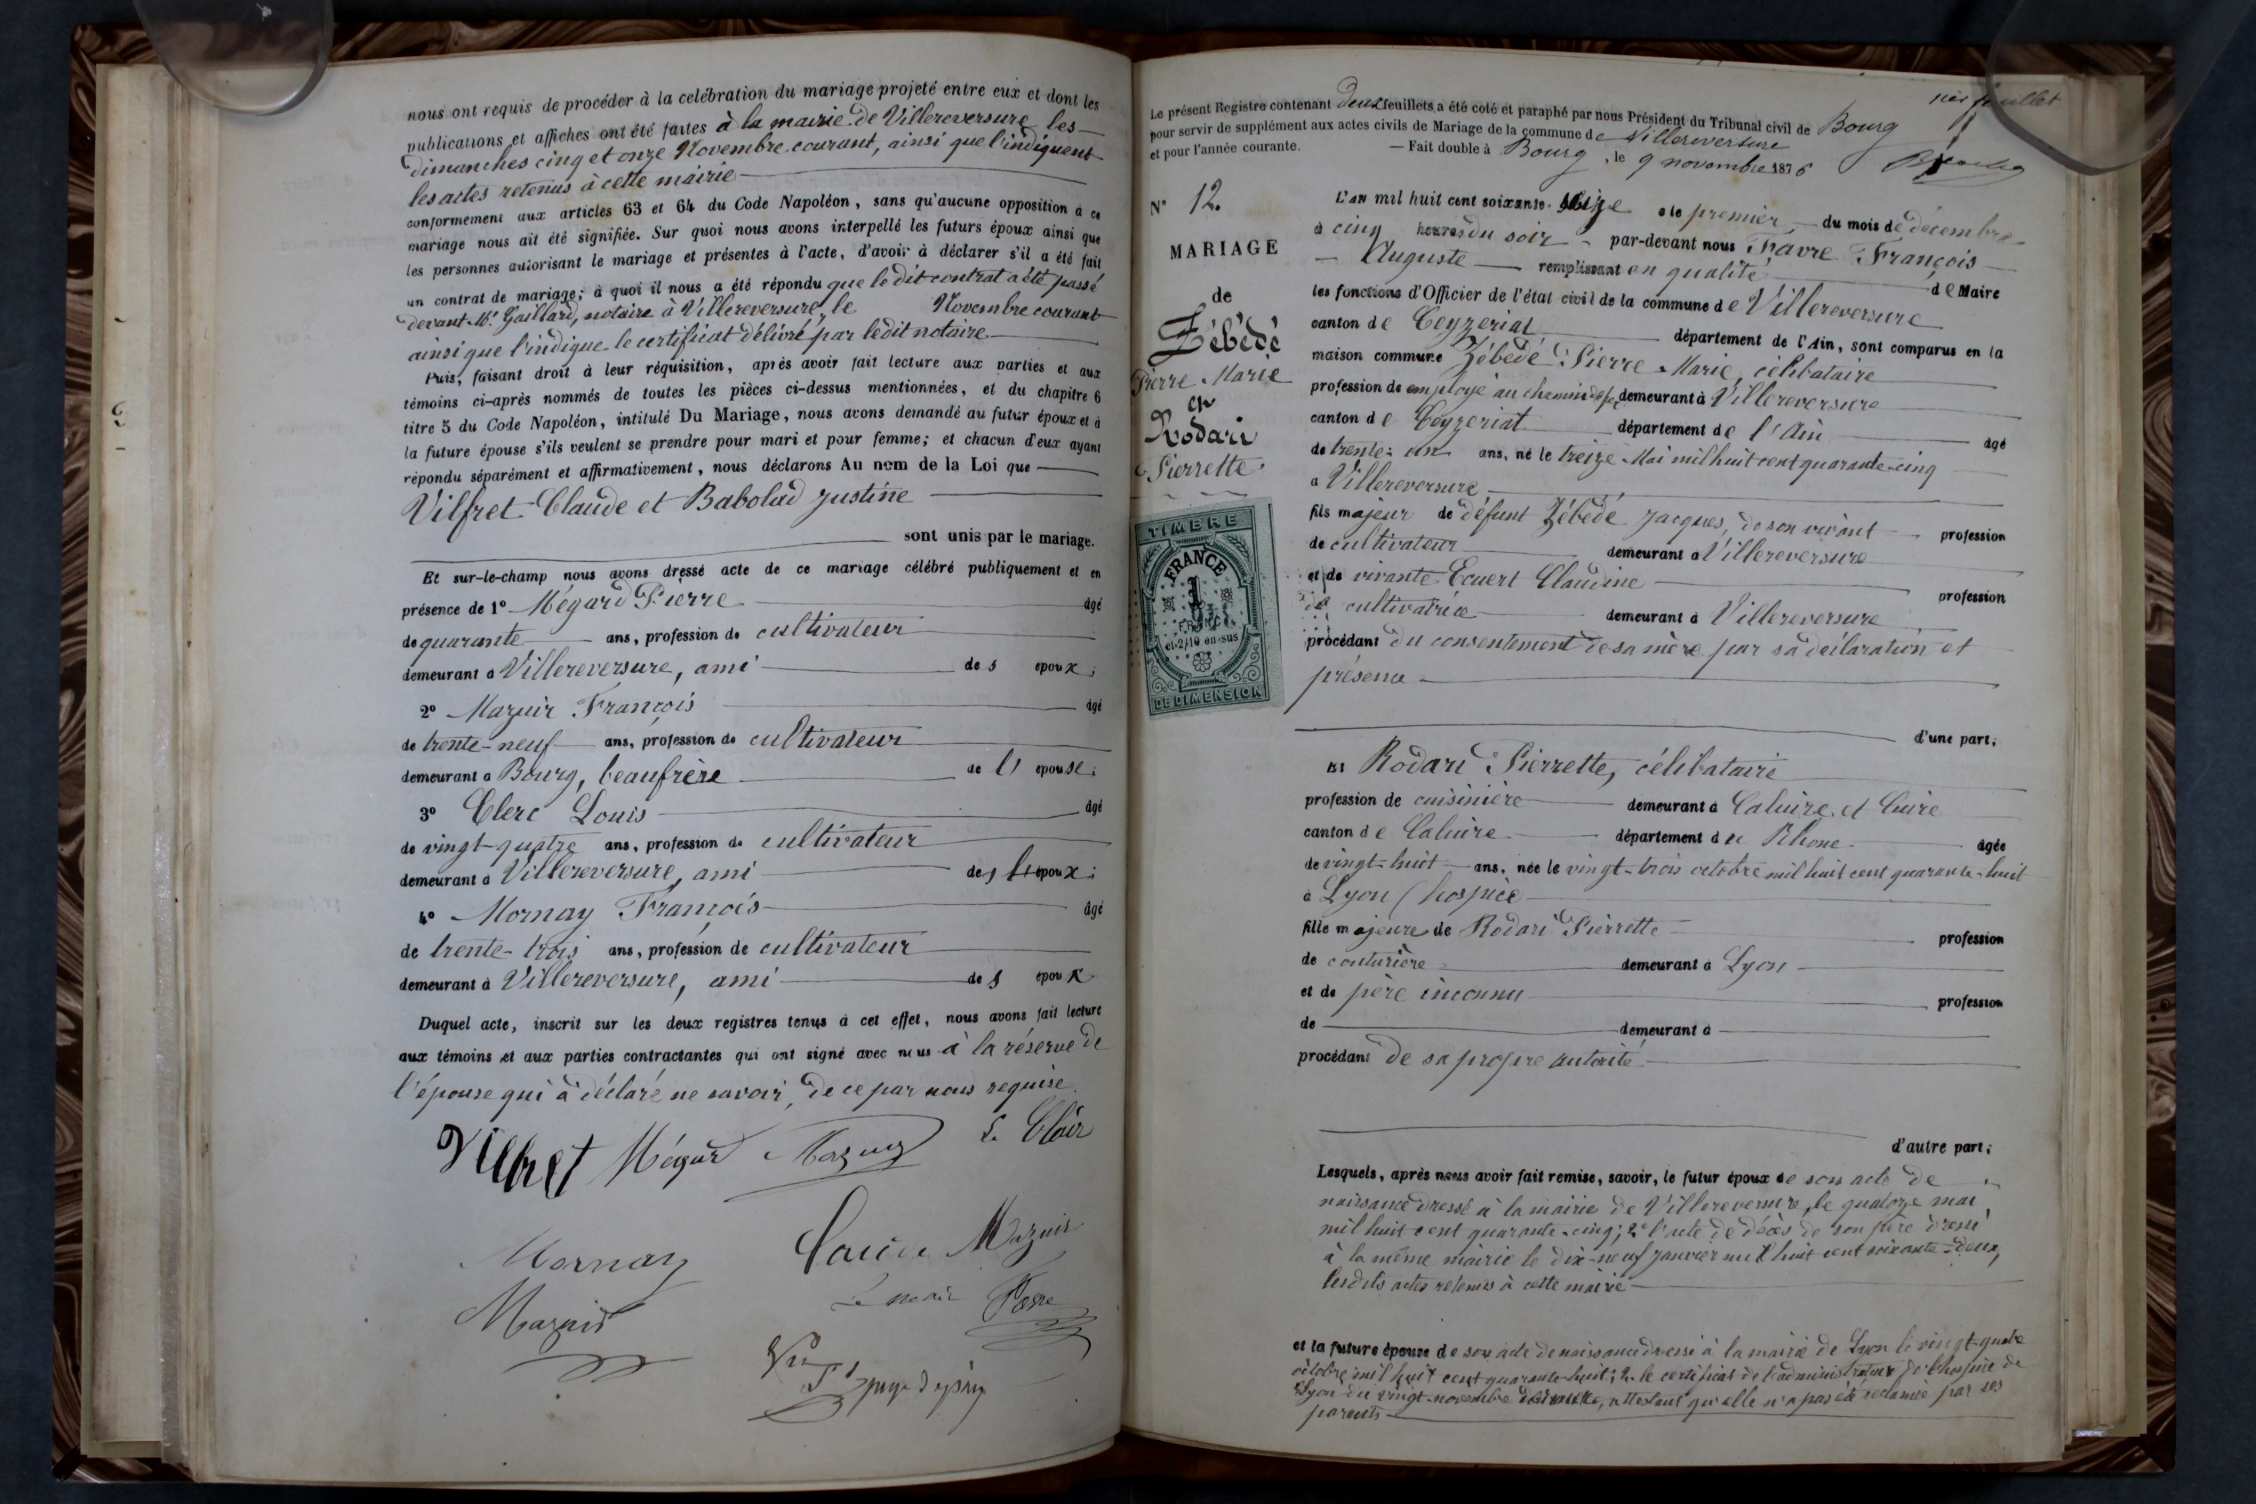 nous ont requis de procéder à la celébration du mariage projeté entre eux et dont les
publications et affiches ont été faites à la mairie de Villereversure les
dimanches cinq et onze Novembre courant, ainsi que l'indiquent
les actes retenus à cette mairie
conformément aux articles 63 et 64 du Code Napoléon, sans qu'aucune opposition à ce
mariage nous ait été signifiée. Sur quoi nous avons interpellé les futurs époux ainsi que
les personnes autorisant le mariage et présentes à l'acte, d'avoir à déclarer s'il a été fait
un contrat de mariage; à quoi il nous a été répondu que le dit contrat a été passé
devant Me Gaillard, notaire à Villereversure, le Novembre courant
ainsi que l'indique le certificat délivré par ledit notaire
Puis, faisant droit à leur réquisition, après avoir fait lecture aux parties et aux
témoins ci-après nommés de toutes les pièces ci-dessus mentionnées, et du chapitre 6
titre 5 du Code Napoléon, intitulé Du Mariage, nous avons demandé au futur époux et à
la future épouse s'ils veulent se prendre pour mari et pour femme; et chacun d'eux ayant
répondu séparément et affirmativement, nous déclarons Au nom de la Loi que
Vilfret Claude et Babolad Justine
sont unis par le mariage.
Et sur-le-champ nous avons dressé acte de ce mariage célébré publiquement et en
présence de 1° Mégard Pierre âgé
de quarante ans, profession de cultivateur
demeurant à Villereversure, ami de s époux;
2° Mazuir François âgé
de trente-neuf ans, profession de cultivateur
demeurant à Bourg, beaufrère de l' épouse;
3° Clerc Louis âgé
de vingt-quatre ans, profession de cultivateur
demeurant à Villereversure, ami des époux;
4° Mornay François âgé
de trente-trois ans, profession de cultivateur
demeurant à Villereversure, ami de s époux
Duquel acte, inscrit sur les deux registres tenus à cet effet, nous avons fait lecture
aux témoins et aux parties contractantes qui ont signé avec nous à la réserve de
l'épouse qui a déclaré ne savoir, de ce par nous requise
Vilfret Mégard Mazuir
Mornay Mazuir
Mazuir Le maire Favre
Le présent Registre contenant deux feuillets a été coté et paraphé par nous Président du Tribunal civil de Bourg
pour servir de supplément aux actes civils de Mariage de la commune de Villereversure
et pour l'année courante. — Fait double à Bourg, le 9 novembre 1876
1er feuillet
N° 12.
MARIAGE
de
Zébédé
Pierre Marie
et
Rodari
Pierrette
TIMBRE
FRANCE
1
FRANC
et 2/10 en sus
DE DIMENSION
L'an mil huit cent soixante seize le premier du mois de décembre
à cinq heures du soir par-devant nous Favre François
Auguste remplissant en qualité de Maire
les fonctions d'Officier de l'état civil de la commune de Villereversure
canton de Ceyzeriat département de l'Ain, sont comparus en la
maison commune Zébédé Pierre Marie, célibataire
profession de employé au chemin de fer demeurant à Villereversure
canton de Ceyzeriat département de l'Ain âgé
de trente-un ans, né le treize Mai mil huit cent quarante-cinq
à Villereversure
fils majeur de défunt Zébédé Jacques, de son vivant profession
de cultivateur demeurant à Villereversure
et de vivante Ecuert Claudine profession
de cultivatrice demeurant à Villereversure
procédant du consentement de sa mère par sa déclaration et
présence
d'une part;
Et Rodari Pierrette, célibataire
profession de cuisinière demeurant à Caluire et Cuire
canton de Caluire département du Rhone âgée
de vingt-huit ans, née le vingt-trois octobre mil huit cent quarante-huit
à Lyon (hospice
fille majeure de Rodari Pierrette profession
de couturière demeurant à Lyon
et de père inconnu profession
de demeurant à
procédant de sa propre autorité
d'autre part;
Lesquels, après nous avoir fait remise, savoir, le futur époux de son acte de
naissance dressé à la mairie de Villereversure, le quatorze mai
mil huit cent quarante-cinq; 2° l'acte de décès de son père dressé
à la même mairie le dix-neuf janvier mil huit cent soixante-deux,
lesdits actes retenus à cette mairie
et la future épouse de son acte de naissance dressé à la mairie de Lyon le vingt-quatre
octobre mil huit cent quarante-huit; 2. le certificat de l'administrateur de l'hospice de
Lyon du vingt novembre, attestant qu'elle n'a pas été réclamée par ses
parents